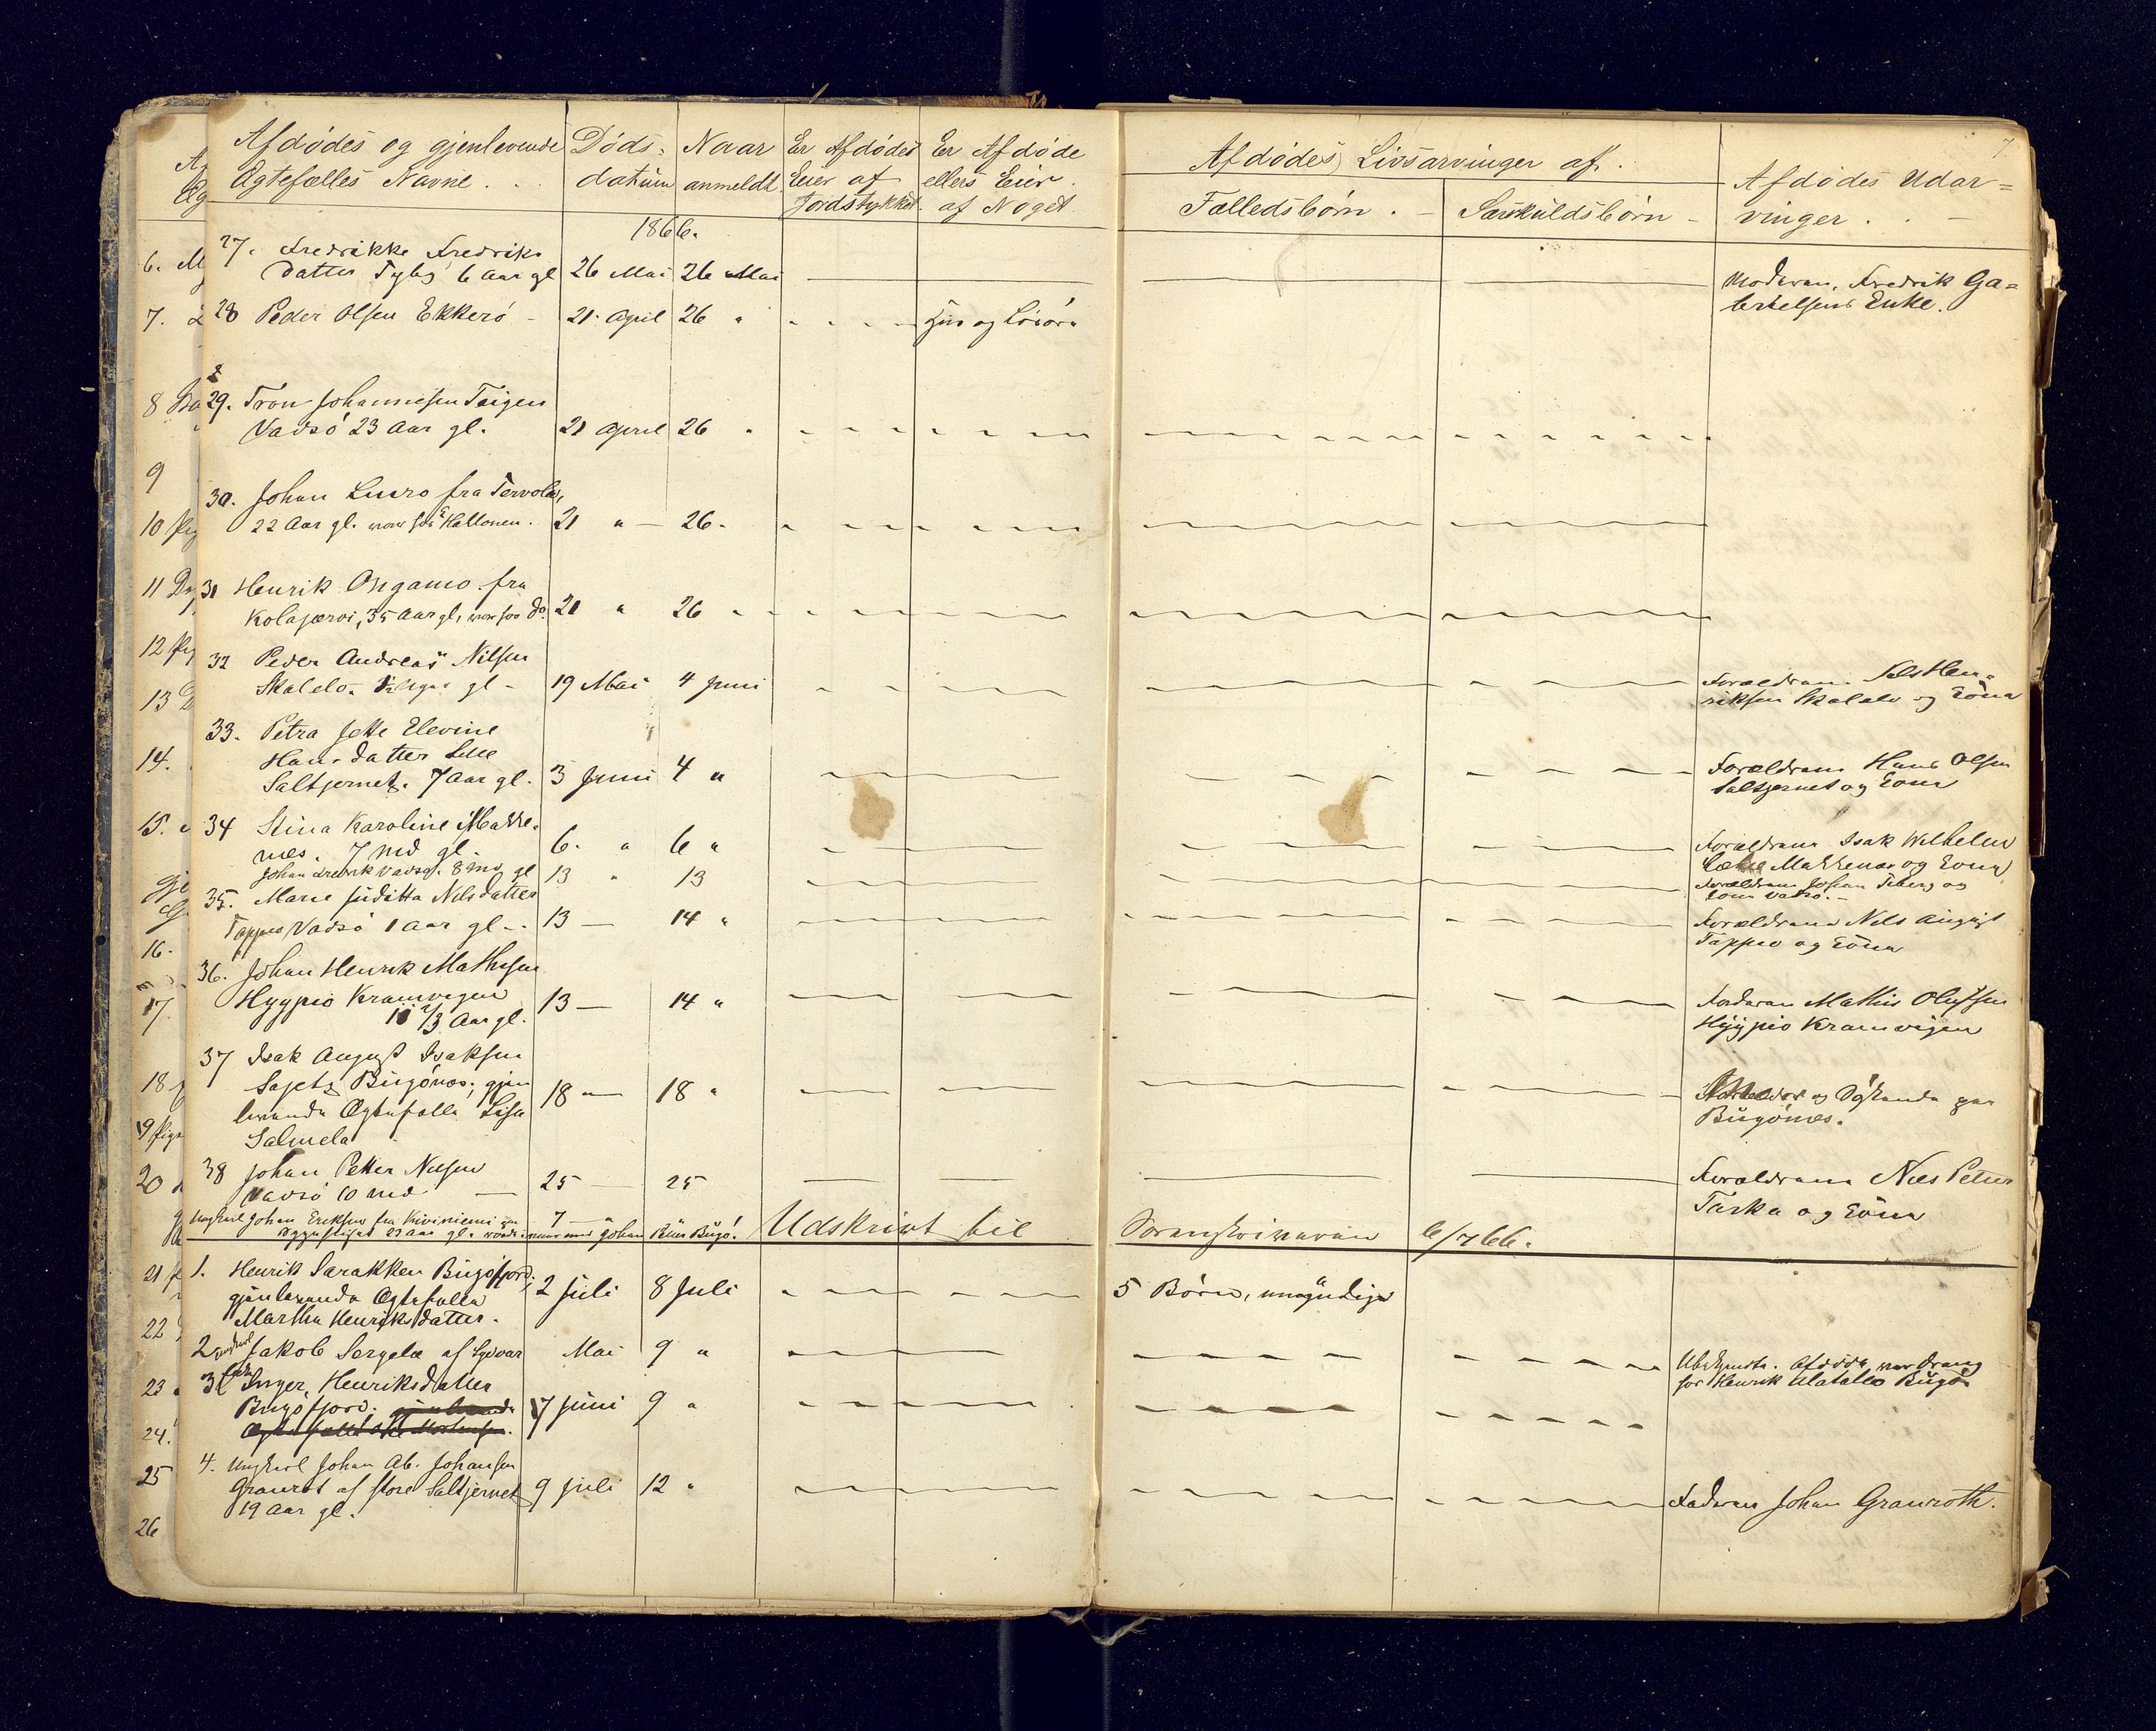 7.
Afdødes og gjenlevende Egtefælles Navne. Døds-datum Naar anmeldt. Er Afdødes Eier af Jordstykket. Er Afdøde ellers Eier af Noget. Afdødes Livsarvinger af. Fælledsbørn. Særskuldsbørn Afdødes Udar=vinger.
1866.
27. Fredrikke Fredriks
datter Tyby 6 Aar gl 26 Mai 26 Mai Moderen, Fredrik Ga=
brielsens Enke.
28 Peder Olsen Ekkerö 21. April 26 " Hus og Lösöre
29. Tron Johannesen Teigen
Vadsö 23 Aar gl. 21 April 26 "
30. Johan Lusro fra Tervola,
22 Aar gl. 21 " 26.
31 Henrik Ongamo fra
Kolajærvi, 35 Aar gl, do. 21 " 26
32 Peder Andreas Nilsen
Skalelv. gl 19 Mai 4 Juni Forældrene Nils Hen=
riksen Skalelv og Kone
33. Petra Jette Elevine
Hansdatter Lille
Saltjernet. 7 Aar gl. 3 Juni 4 " Forældrene Hans Olsen
Saltjernet og Kone
34 Stina Karoline Makke=
næs. 7 Md gl. 6. " 6 " Forældrene Isak Wilhelm
Makkenæs og Kone
Johan Fredrik Vadsö. 8 Md gl 13 " 13 Forældrene Johan og
Kone Vadsö.
35. Marie Juditta Nilsdatter
Tappio Vadsö 1 Aar gl 13 — 14 " Forældrene Nils August
Tappio og Kone
36. Johan Henrik Mathisen
Hyypiö Kramvigen
1/3 Aar gl. 13 — 14 " Faderen Mathis Olufsen
Hyypiö Kramvigen
37 Isak August Isaksen
Sajets Bugönæs, gjen
levende Egtefælle Lisa
Salmela 18 — 18 " og Söskende paa
Bugönæs.
38 Johan Petter Nilsen
Vadsö 10 Md 25 — 25 Forældrene Nils Petter
Taska og Kone
Ungkarl Johan Eriksen fra Kiviniemi 7 —
23 Aar gl. Johan Bugö. Udskrivt til Sorenskriveren 6/7 66.
1. Henrik Sarakken Bugöfjord,
gjenlevende Egtefælle
Martha Henriksdatter. 2 Juli 8 Juli 5 Börn, umyndige
2 Ungkarl Jakob Sergelæ af Sydvar Mai 9 " Ubekjendte. Afdöde var dreng
for Henrik Alatalo Bugö
3 Enke Inger Henriksdatter
Bugöfjord. gjenlevende
Egtefælle Mortensen. 7 Juni 9 "
4. Ungkarl Johan Ab. Johansen
Granrot af store Saltjernet 9 Juli 12 " Faderen Johan Granroth.
19 Aar gl.
6. M
7.
8
9
10
11
12
13
14.
15.
16.
17
18
19
20
21
22
23
24.
25
26